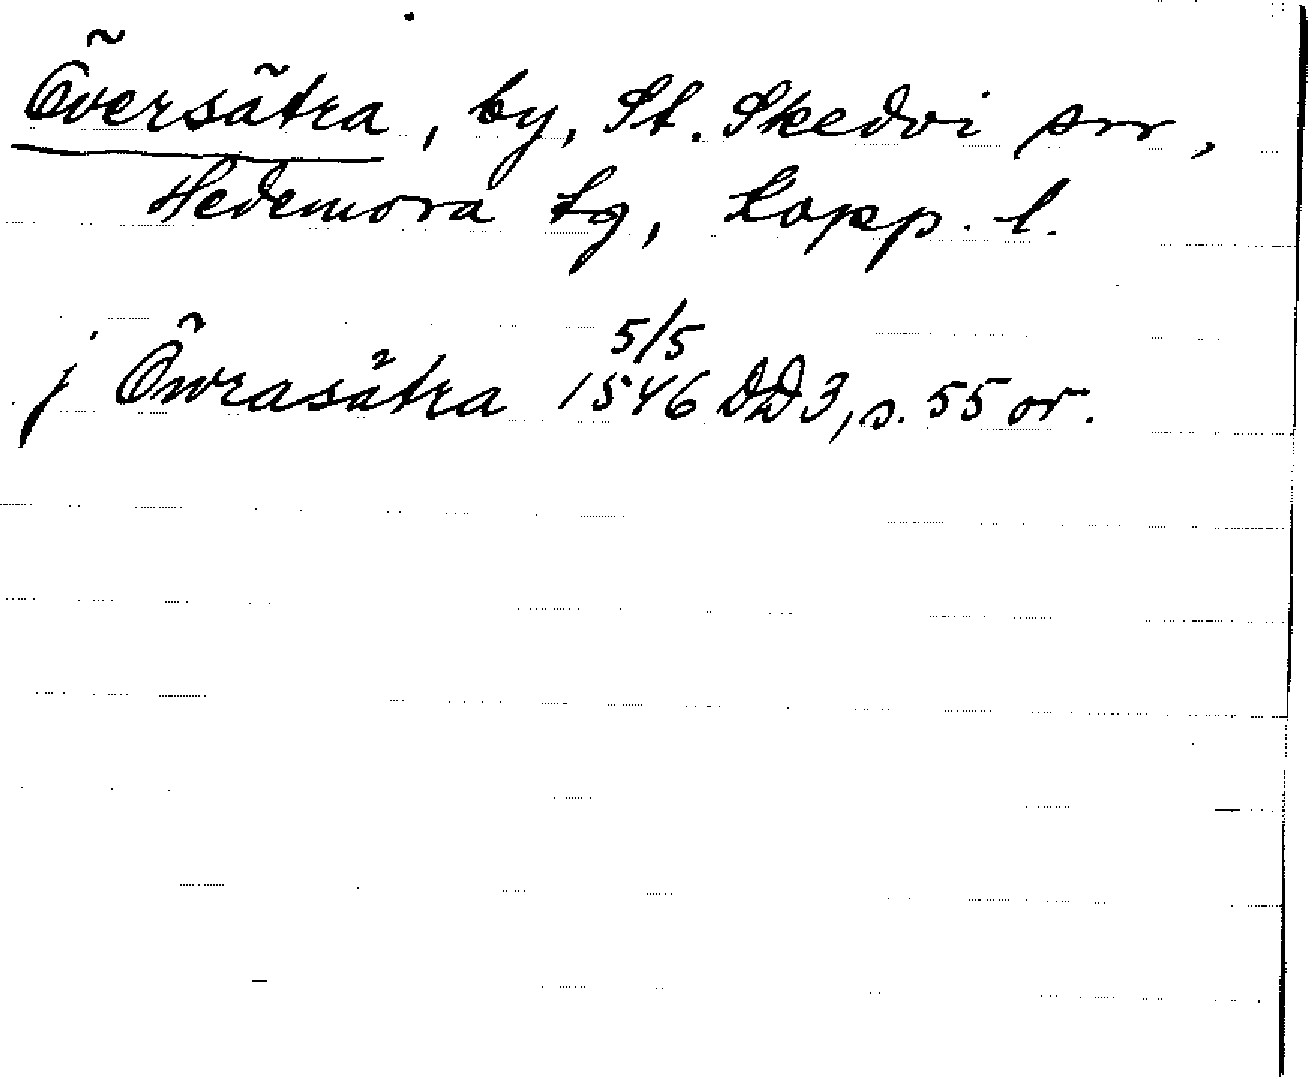 Översätra, by, St. Skedvi sn,
Hedemora tg, Kopp. l.
j Öwrasätra 5/5 1546 DD3, s. 55 or.